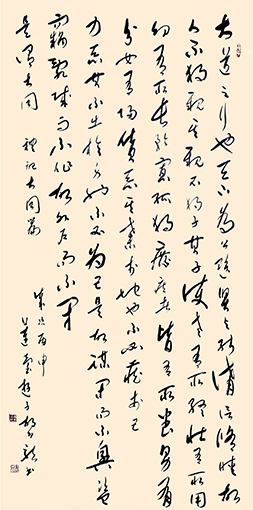 大道之行也天下為公選賢與能講信修睦故
人不獨親其親不獨子其子使老有所終壯有所用
幼有所長矜寡孤獨廢疾者皆有所養男有
分女有歸貨惡其棄於地也不必藏於己
力惡其不出於身也不必為己是故謀閉而不興盜
竊亂賊而不作故外戶而不閉
是謂大同 禮記大同篇
歲次丙申
書